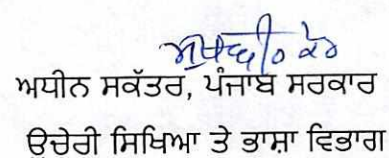 ਅਧੀਨ ਸਕੱਤਰ, ਪੰਜਾਬ ਸਰਕਾਰ
ਉਚੇਰੀ ਸਿਖਿਆ ਤੇ ਭਾਸ਼ਾ ਵਿਭਾਗ